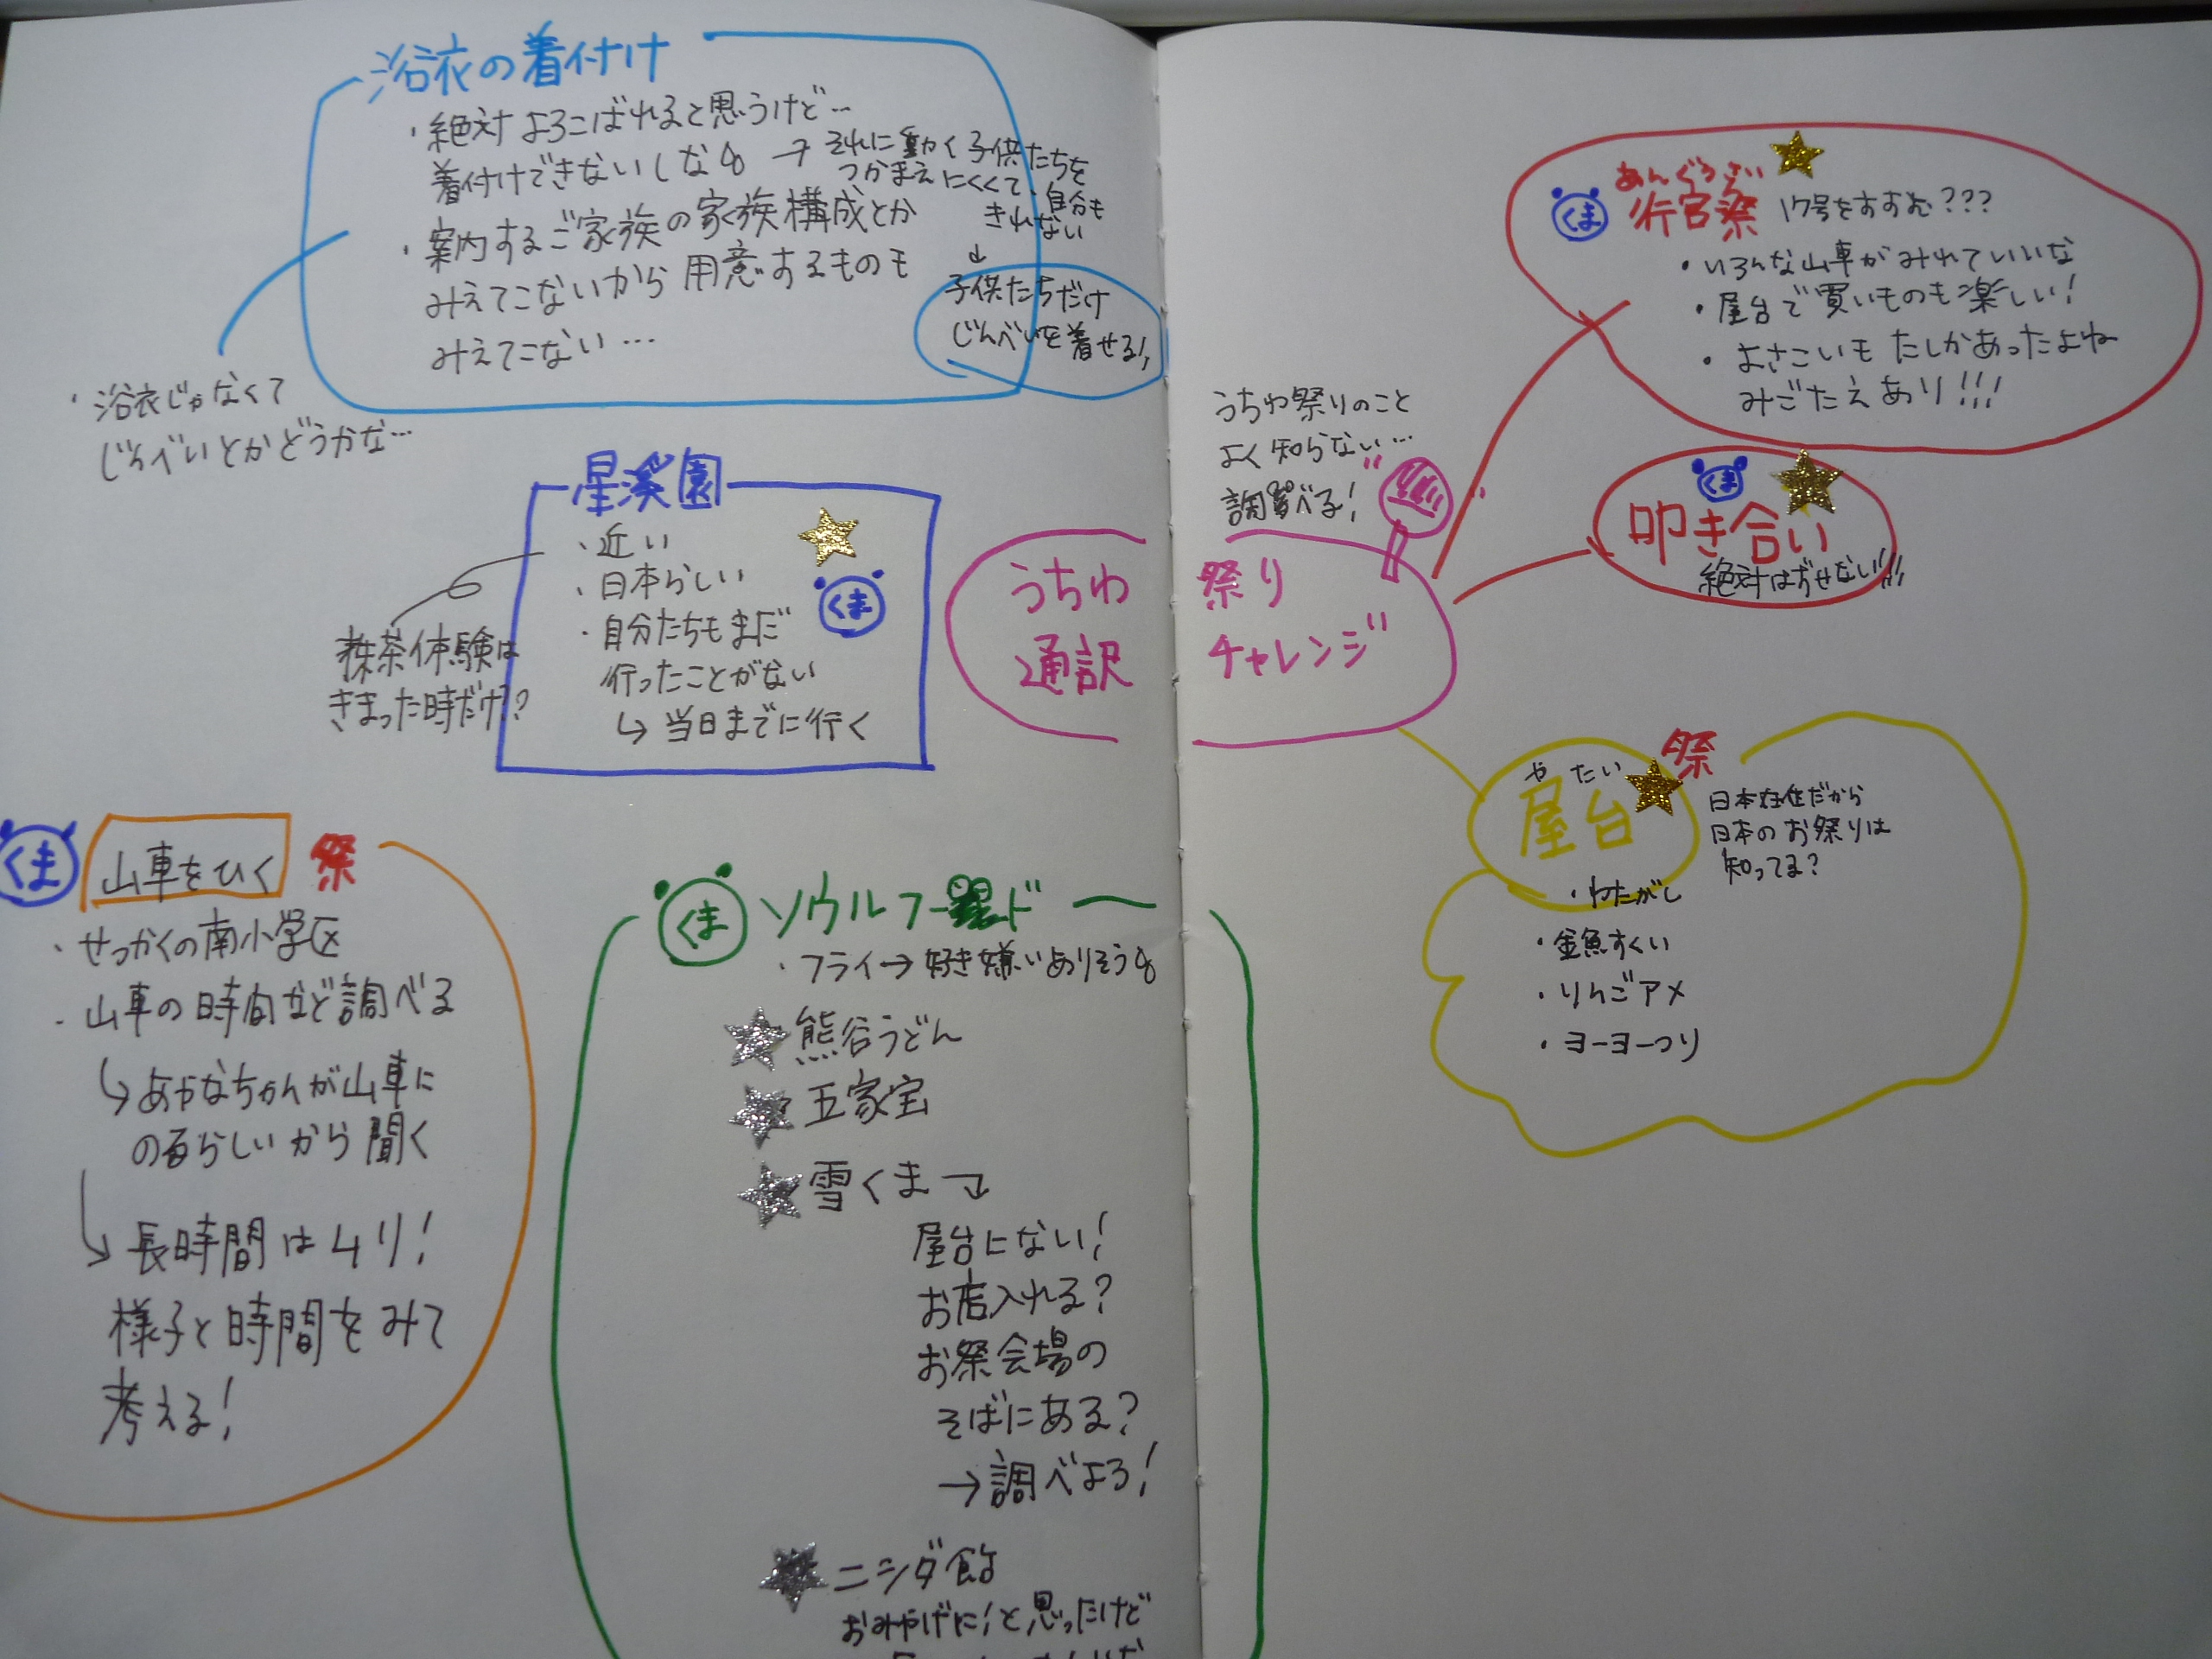 浴衣の着付け
・絶対よろこばれると思うけど…
着付けできないしなぁ → それに動く子供たちを
つかまえにくくて、自分も
きれない
↓
子供たちだけ
じんべいを着せる!!
・案内するご家族の家族構成とか
みえてこないから用意するものも
みえてこない…
・浴衣じゃなくて
じんべいとかどうかな…
星溪園
・近い
・日本らしい
くま
・自分たちもまだ
行ったことがない
↳ 当日までに行く
抹茶体験は
きまった時だけ!?
うちわ祭り
通訳チャレンジ
うちわ祭りのこと
よく知らない…
調べる!
くま
山車をひく
祭
・せっかくの南小学区
・山車の時間など調べる
↳ あやなちゃんが山車に
のるらしいから聞く
↳ 長時間はムリ!
様子と時間をみて
考える!
くま
ソウルフード
・フライ→好き嫌いありそう
熊谷うどん
五家宝
雪くま
屋台にない!
お店入れる?
お祭会場の
そばにある?
→調べよう!
ニシダ飴
おみやげに!と思ったけど
あんぐうさい
くま
行宮祭 17号をすすむ???
・いろんな山車がみれていいな
・屋台で買いものも楽しい!
・よさこいもたしかあったよね
みごたえあり!!!
くま
叩き合い
絶対はずせない!!!
やたい
屋台
祭
日本在住だから
日本のお祭りは
知ってる?
・わたがし
・金魚すくい
・りんごアメ
・ヨーヨーつり